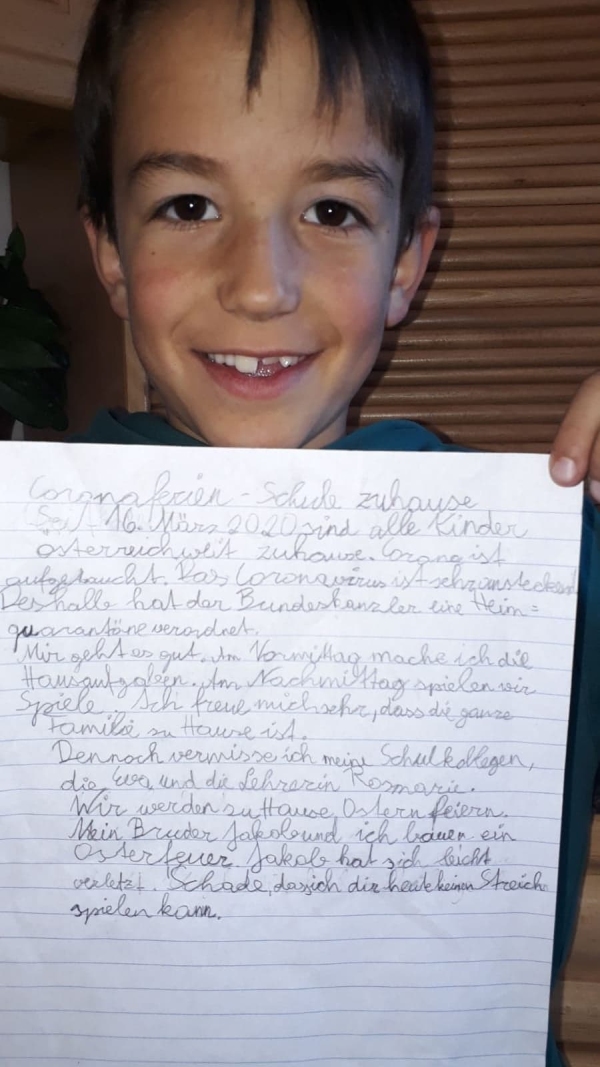 Coronaferien - Schule zuhause
Seit 16. März 2020 sind alle Kinder
österreichweit zuhause. Corona ist
aufgetaucht. Das Coronavirus ist sehr ansteckend.
Deshalb hat der Bundeskanzler eine Heim=
quarantäne verordnet.
Mir geht es gut. Am Vormittag mache ich die
Hausaufgaben. Am Nachmittag spielen wir
Spiele. Ich freue mich sehr, dass die ganze
Familie zu Hause ist.
Dennoch vermisse ich meine Schulkollegen,
die Eva und die Lehrerin Rosmarie.
Wir werden zu Hause Ostern feiern.
Mein Bruder Jakob und ich bauen ein
Osterfeuer. Jakob hat sich leicht
verletzt. Schade, dass ich dir heute keinen Streich
spielen kann.